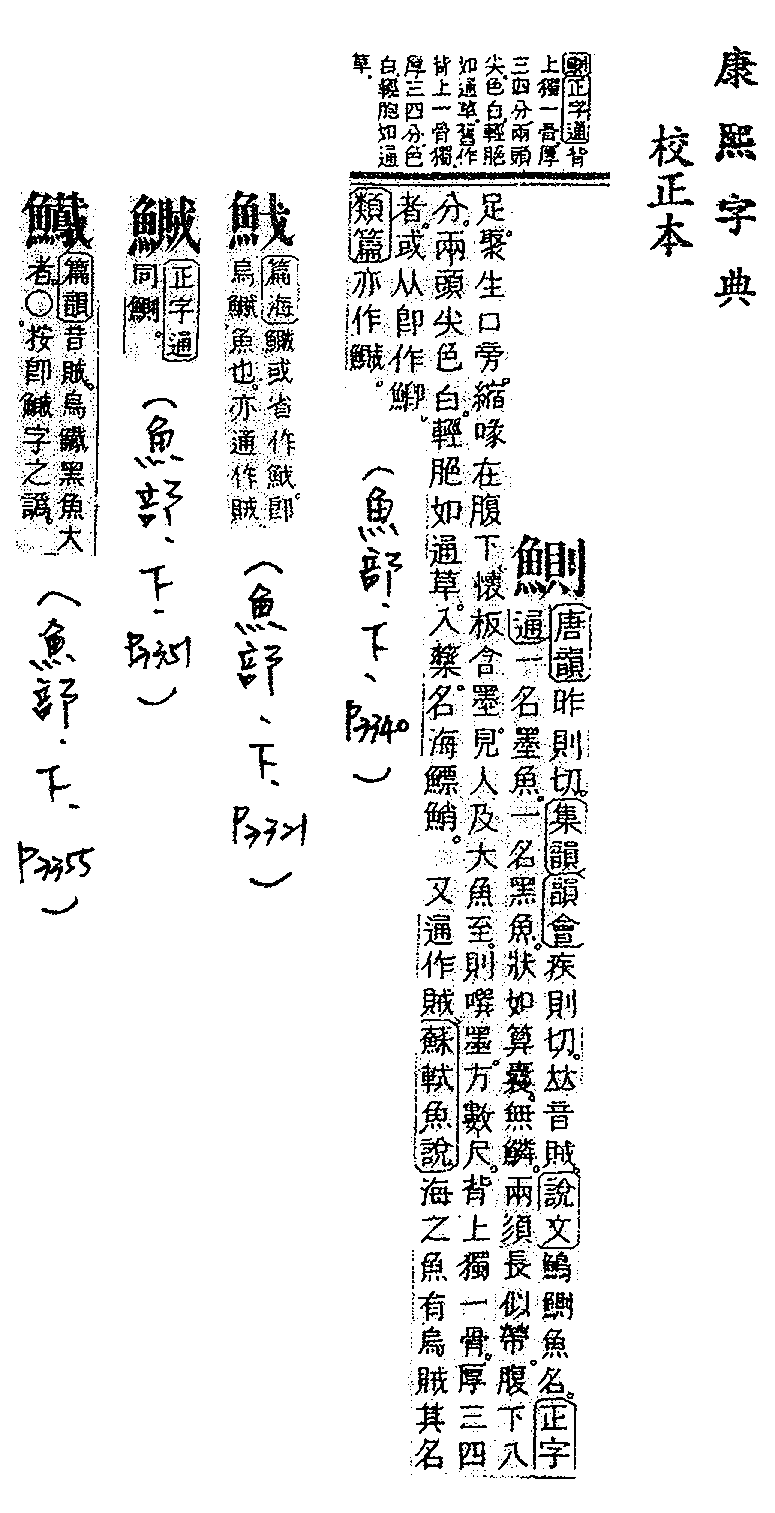 康熙字典
校正本
鰂正字通背
上獨一骨厚
三四分兩頭
尖色白輕脃
如通草舊作
背上一骨獨
厚三四分色
白輕胞如通
草。
鰂
唐韻昨則切。集韻韻會疾則切。𠀤音賊。說文鰞鰂魚名。正字
通一名墨魚。一名黑魚。狀如算囊。無鱗。兩須長似帶。腹下八
足。聚生口旁。縮喙在腹下。懷板含墨。見人及大魚至。則噀墨。方數尺。背上獨一骨。厚三四
分。兩頭尖色白。輕脃如通草。入藥。名海鰾鮹。 又通作賊蘇軾魚說海之魚有烏賊其名
者。或从卽作鯽。
類篇亦作鱡。
(魚部、下、P3340)
篇海鱡或省作卽
烏鱡魚也。亦通作賊
(魚部、下、P3321)
鱡
正字通
同鰂。
(魚部、下、P3351)
篇韻音賊。烏黑魚大
者。○按卽鱡字之譌。
(魚部、下、P3355)